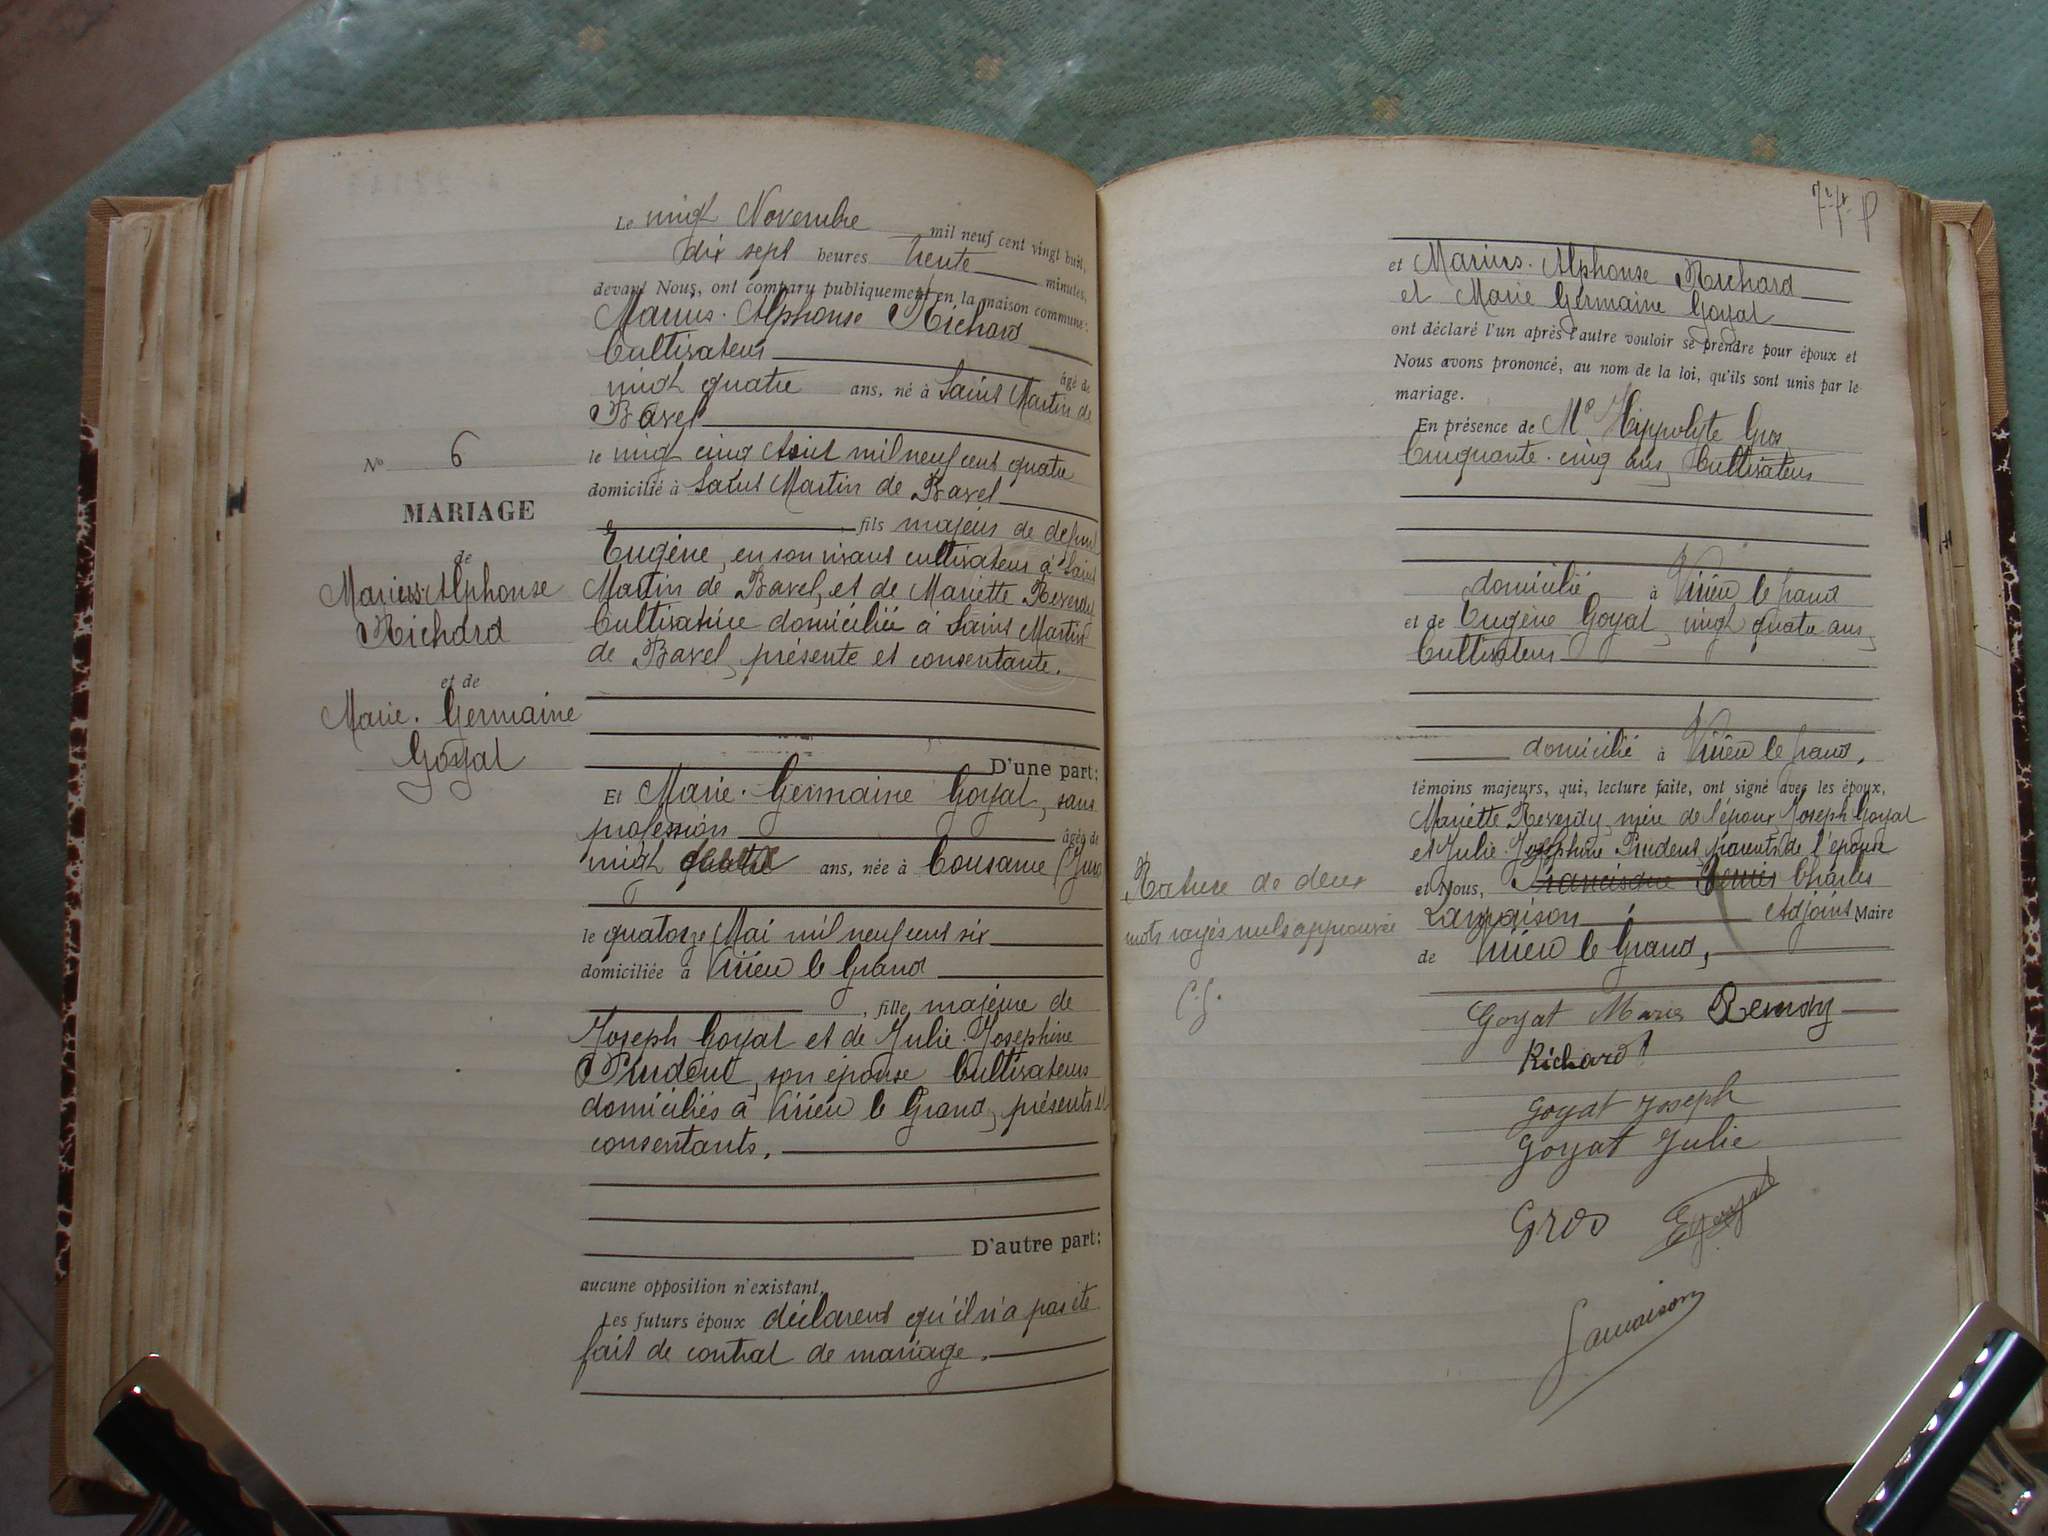 Le vingt Novembre mil neuf cent vingt huit,
dix sept heures trente minutes,
devant Nous, ont comparu publiquement en la maison commune:
Marius-Alphonse Richard
Cultivateur
âgé de
vingt quatre ans, né à Saint Martin de
Bavel
le vingt cinq Août mil neuf cent quatre
domicilié à Saint Martin de Bavel
fils majeur de defunt
Eugène, en son vivant cultivateur à Saint
Martin de Bavel, et de Mariette Reverdy
Cultivatrice domiciliée à Saint Martin
de Bavel, présente et consentante.
D'une part:
Et Marie-Germaine Goyat, sans
profession âgée de
vingt deux ans, née à Cousance (Jura
le quatorze Mai mil neuf cent six
domiciliée à Virieu le Grand
, fille majeure de
Joseph Goyat et de Julie-Josephine
Prudent, son épouse Cultivateurs
domiciliés à Virieu le Grand, présents et
consentants.
D'autre part:
aucune opposition n'existant.
Les futurs époux déclarent qu'il n'a pas été
fait de contrat de mariage.
No 6
MARIAGE
de
Marius-Alphonse
Richard
et de
Marie-Germaine
Goyat
et Marius-Alphonse Richard
et Marie Germaine Goyat
ont déclaré l'un après l'autre vouloir se prendre pour époux et
Nous avons prononcé, au nom de la loi, qu'ils sont unis par le
mariage.
En présence de Mr Hippolyte Gros
Cinquante-cinq ans, Cultivateur
domicilié à Virieu le grand
et de Eugène Goyat, vingt quatre ans,
Cultivateur
domicilié à Virieu le grand,
témoins majeurs, qui, lecture faite, ont signé avec les époux,
Mariette Reverdy, mère de l'époux Joseph Goyat
et Julie-Josephine Prudent parents de l'épouse
et Nous, Francisque Charles
Lamaison, Adjoint Maire
de Virieu le Grand,
Rature de deux
mots rayés nuls approuvée
Goyat Marie Reverdy
Richard
Goyat Joseph
Goyat Julie
Gros E Goyat
Lamaison